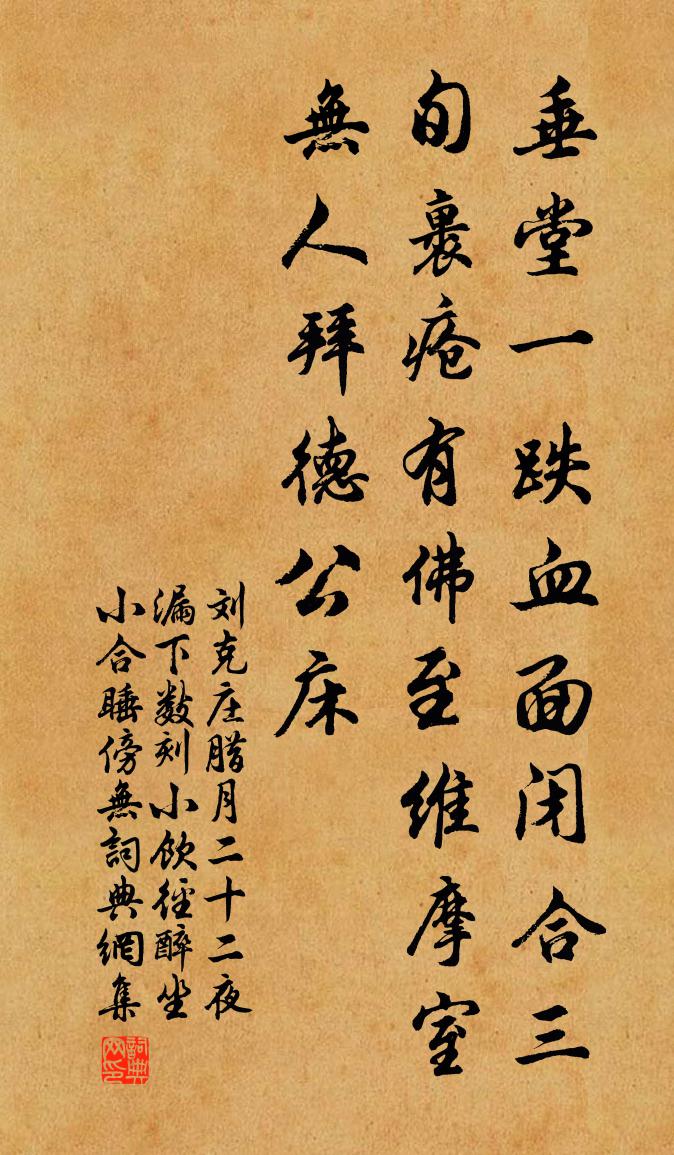 垂堂一跌血面闭合三
旬裹疮有佛至维摩室
無人拜德公床
刘克庄腊月二十二夜
漏下数刻小饮径醉坐
小合睡傍無詞典網集
詞典网印